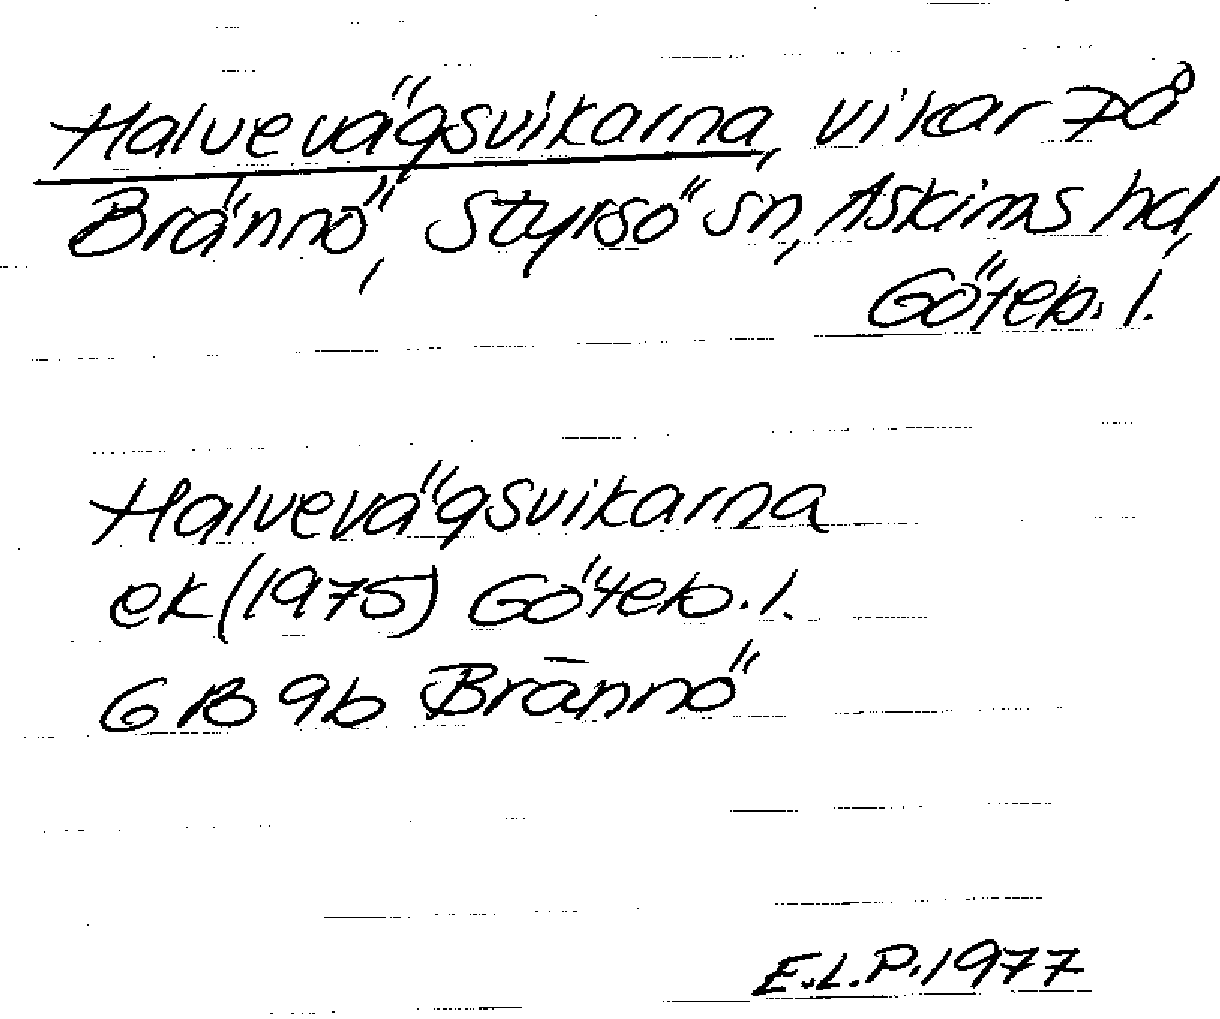 Halvevägsvikarna, vikar på
Brännö, Styrsö sn, Askims hd,
Göteb. l.
Halvevägsvikarna
ek (1975) Göteb. l.
6B 9b Brännö
E.L.P. 1977